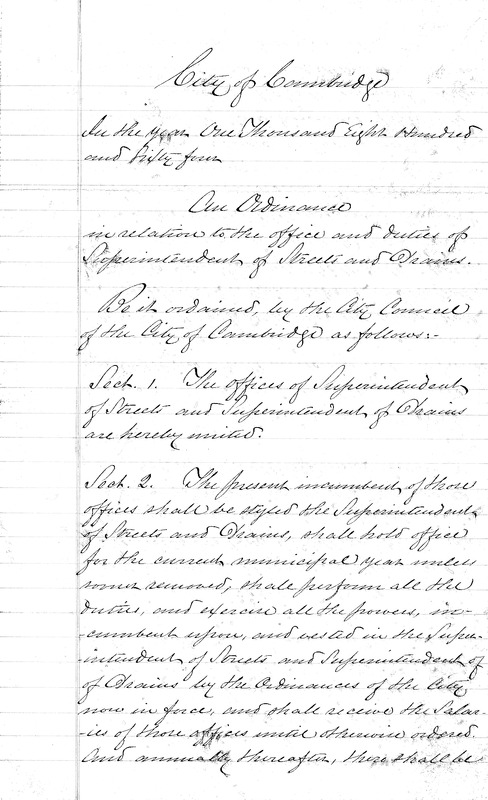 City of Cambridge
In the year One Thousand Eight Hundred
and Sixty four
An Ordinance
in relation to the office and duties of
Superintendent of Streets and Drains.
Be it ordained, by the City Council
of the City of Cambridge as follows:-
Sect. 1. The offices of Superintendent
of Streets and Superintendent of Drains
are hereby united.
Sect. 2. The present incumbent of those
offices shall be styled the Superintendent
of Streets and Drains, shall hold office
for the current municipal year unless
sooner removed, shall perform all the
duties, and exercise all the powers, in-
-cumbent upon, and vested in the Super-
-intendent of Streets and Superintendent of
of Drains by the Ordinances of the City
now in force, and shall receive the Salar-
-ies of those offices until otherwise ordered.
And annually thereafter, there shall be